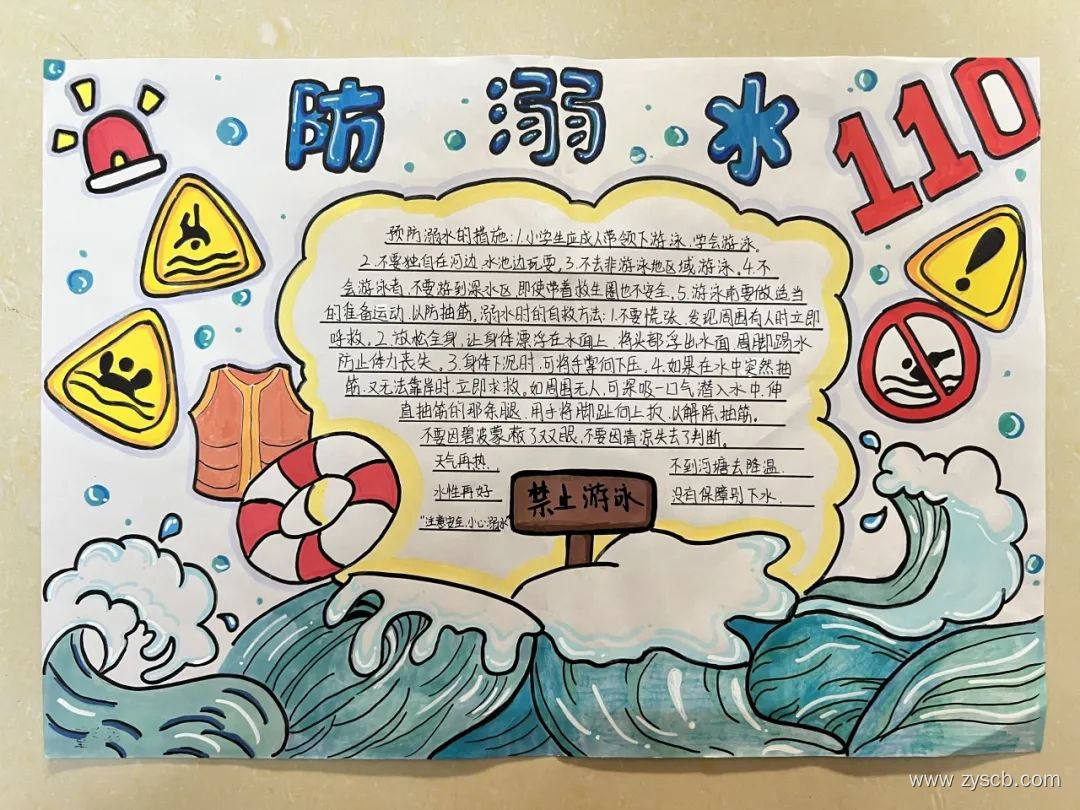 防溺水
110
预防溺水的措施:1.小学生应成人带领下游泳,学会游泳。
2.不要独自在河边、水池边玩耍。3.不去非游泳地区域游泳。4.不
会游泳者,不要游到深水区,即使带着救生圈也不安全。5.游泳前要做适当
的准备运动,以防抽筋。溺水时的自救方法:1.不要慌张,发现周围有人时立即
呼救。2.放松全身,让身体漂浮在水面上,将头部浮出水面,周脚踢水
防止体力丧失。3.身体下沉时,可将手掌向下压。4.如果在水中突然抽
筋,又无法靠岸时,立即求救。如周围无人,可深吸一口气潜入水中,伸
直抽筋的那条腿,用手将脚趾向上扳,以解除抽筋。
不要因碧波蒙蔽了双眼,不要因清凉失去了判断。
天气再热, 不到河塘去降温.
水性再好 没有保障别下水.
"注意安全,小心溺水
禁止游泳
www.zyscb.com